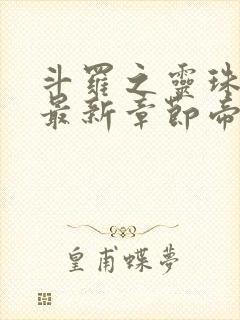 斗羅之靈珠
最新章節帝
皇甫蝶夢